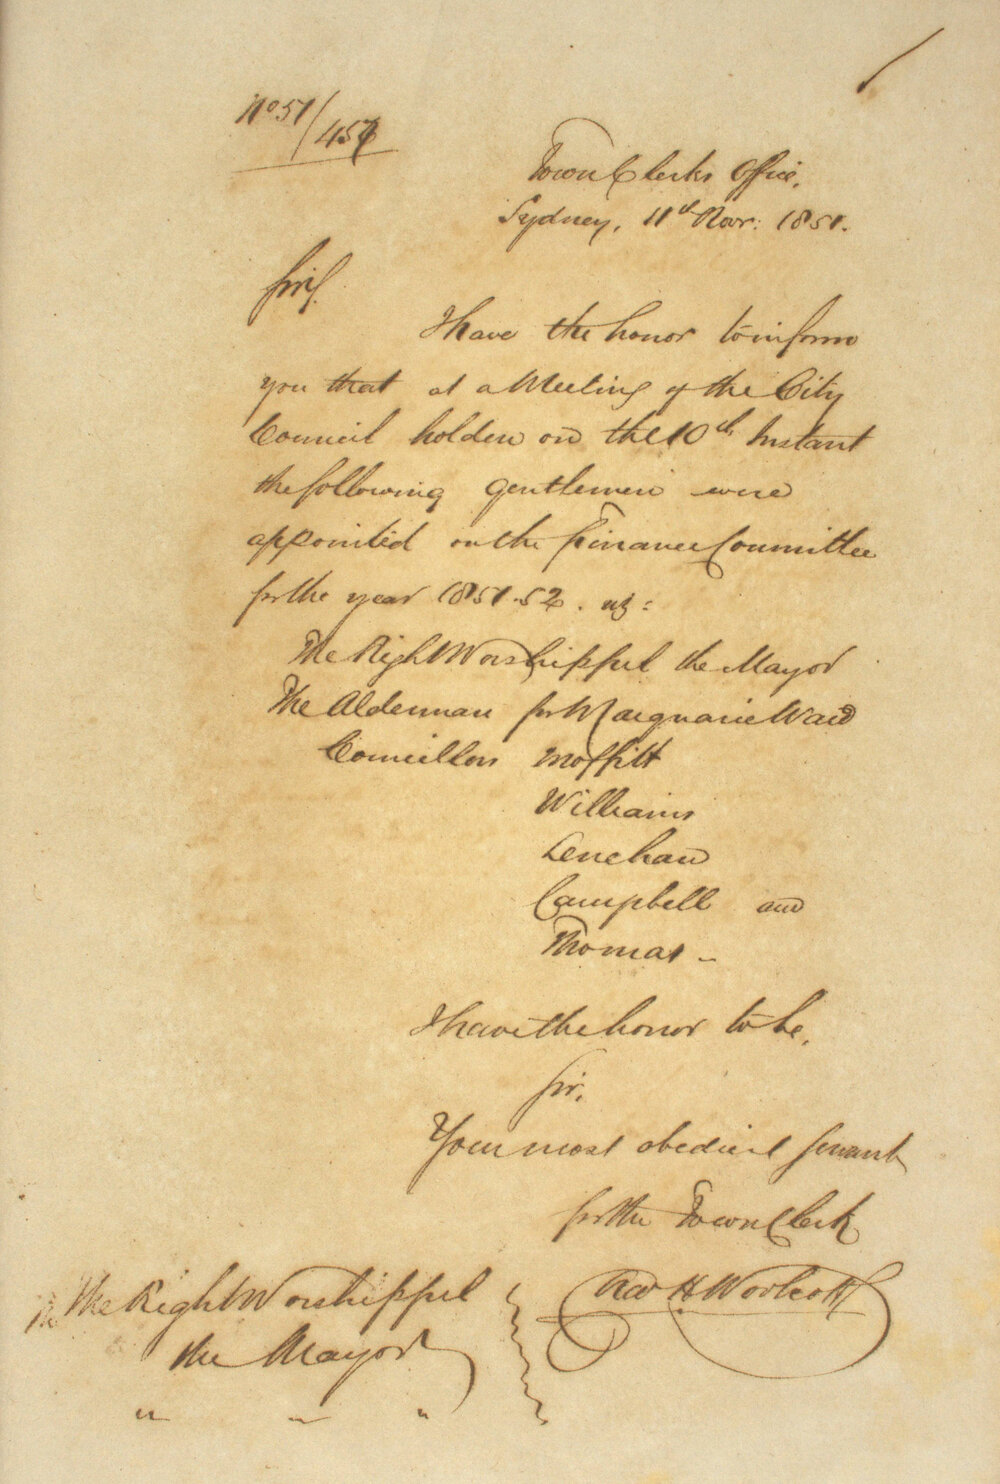 No 51/457
Town Clerks Office,
Sydney, 11th Novr: 1851.
Sir,
I have the honor to inform
you that at a Meeting of the City
Council holden on the 10th Instant
the following gentlemen were
appointed on the Finance Committee
for the year 1851.52. viz:
The Right Worshipful the Mayor
The Alderman for Macquarie Ward
Councillors Moffitt
Williams
Lenehan
Campbell and
Thomas -
I have the honor to be,
Sir,
Your most obedient Servant
for the Town Clerk
H. Worlcott
The Right Worshipful
the Mayor
" " "